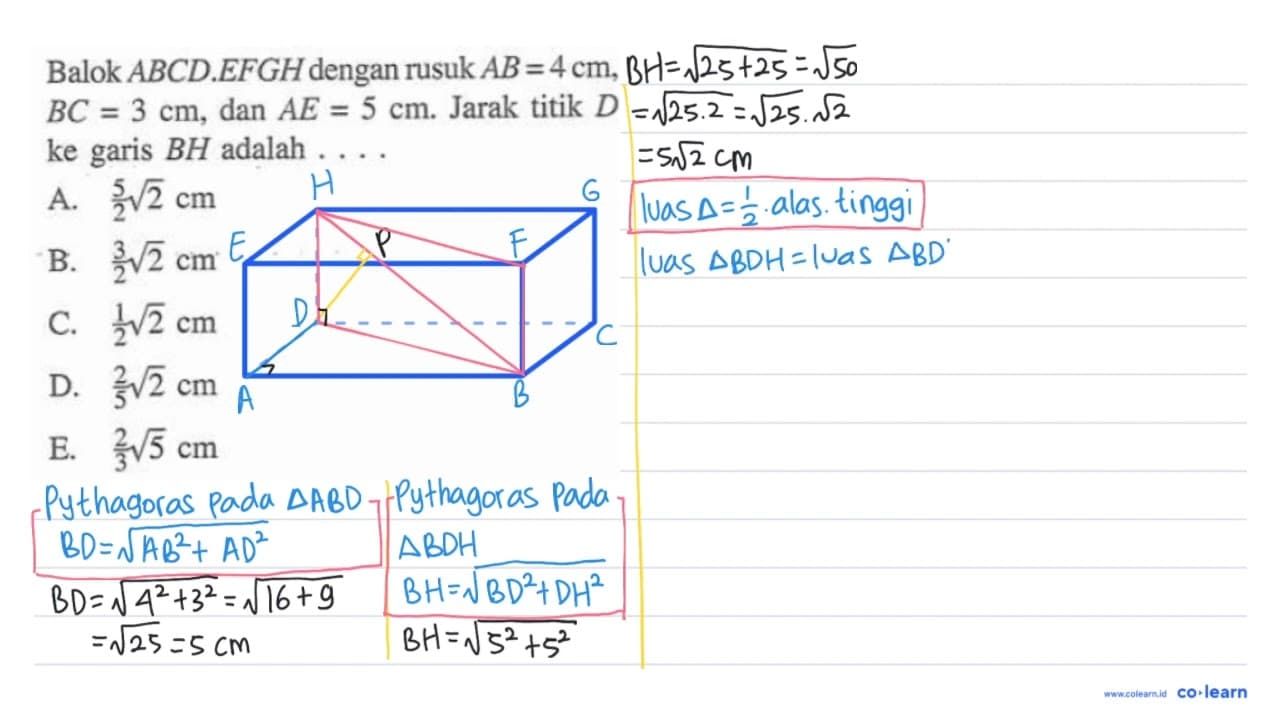 Balok ABCD.EFGH dengan rusuk AB = 4 cm,
BC = 3 cm, dan AE = 5 cm. Jarak titik D
ke garis BH adalah . . . .
A. 5/2 √2 cm
B. 3/2 √2 cm
C. 1/2 √2 cm
D. 2/5 √2 cm
E. 2/3 √5 cm
H
G
E
P
F
D
C
A
B
Pythagoras pada △ABD
BD=√AB²+ AD²
BD=√4²+3² = √16+9
=√25 = 5 cm
Pythagoras pada
△BDH
BH=√BD²+DH²
BH=√5²+5²
BH=√25+25 = √50
=√25.2 = √25.√2
=5√2 cm
luas △=1/2.alas.tinggi
luas △BDH=luas △BD
www.colearn.id co·learn